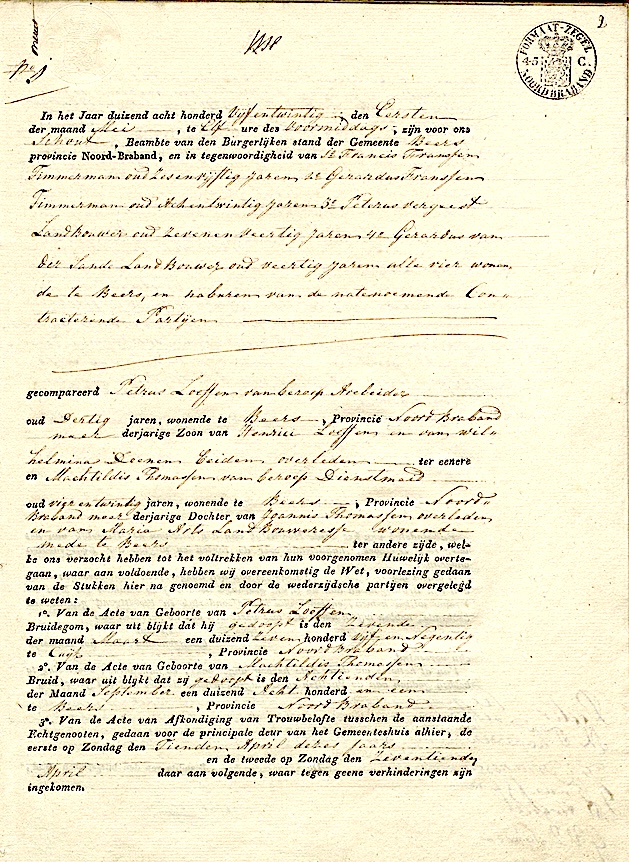 2
FORMAAT-ZEGEL
45 C.
NOORDBRABAND.
No 1
In het Jaar duizend acht honderd Vijfentwintig, den Eersten
der maand Mei, te Elf ure des Voormiddags, zijn voor ons
Schout, Beambte van den Burgerlijken stand der Gemeente Beers
provincie Noord-Braband, en in tegenwoordigheid van 1e Francis Franssen
Timmerman oud Zesenvijftig jaren 2e Gerardus Franssen
Timmerman oud Achentwintig jaren 3e Petrus vergeest
Landbouwer oud Zevenenveertig jaren 4e Gerardus van
der Sande Landbouwer oud veertig jaren alle vier wonen
de te Beers, en naburen van de natenoemende Con
tracterende Partijen
gecompareerd Petrus Loeffen van beroep Arbeider
oud Dertig jaren, wonende te Beers, Provincie Noord Braband
meer derjarige Zoon van Henrici Loeffen en van wil
helmina Doenen beiden overleden ter eenere
en Machtildis Thomassen van beroep Dienstmeid
oud vier entwintig jaren, wonende te Beers, Provincie Noord
Braband meer derjarige Dochter van Joannis Thomassen overleden
en van Maria Arts Landbouweresse wonende
mede te Beers ter andere zijde, wel-
ke ons verzocht hebben tot het voltrekken van hun voorgenomen Huwelijk overte-
gaan, waar aan voldoende, hebben wij overeenkomstig de Wet, voorlezing gedaan
van de Stukken hier na genoemd en door de wederzijdsche partijen overgelegd
te weten:
1o. Van de Acte van Geboorte van Petrus Loeffen
Bruidegom, waar uit blijkt dat hij gedoopt is den Zevende
der maand Maart een duizend Zeven honderd vijf en Negentig
te Cuijk, Provincie Noord Braband
2o. Van de Acte van Geboorte van Machtildis Thomassen
Bruid, waar uit blijkt dat zij gedoopt is den Achtienden
der Maand September een duizend Acht honderd en een
te Beers, Provincie Noord Braband
3o. Van de Acte van Afkondiging van Trouwbelofte tusschen de aanstaande
Echtgenooten, gedaan voor de principale deur van het Gemeenteshuis alhier, de
eerste op Zondag den Tienden April dezes jaars
en de tweede op Zondag den Zeventiende
April daar aan volgende, waar tegen geene verhinderingen zijn
ingekomen.